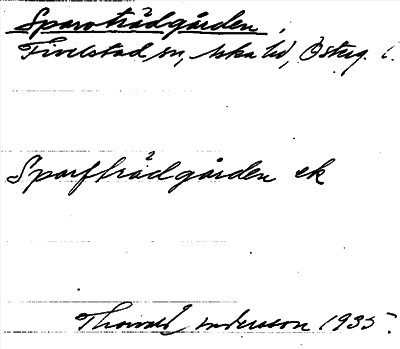 Sparvträdgården,
Fivelstad sn, Aska hd, Österg. l.
Sparfträdgården ek
Thorvald Andersson 1935.